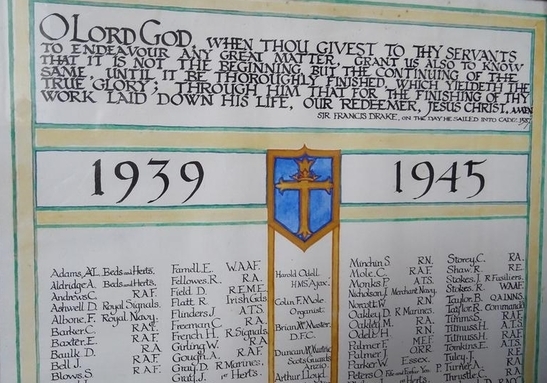 O LORD GOD, WHEN THOU GIVEST TO THY SERVANTS
TO ENDEAVOUR ANY GREAT MATTER, GRANT US ALSO TO KNOW
THAT IT IS NOT THE BEGINNING BUT THE CONTINUING OF THE
SAME, UNTIL IT BE THOROUGHLY FINISHED, WHICH YIELDETH THE
TRUE GLORY; THROUGH HIM THAT FOR THE FINISHING OF THY
WORK LAID DOWN HIS LIFE, OUR REDEEMER, JESUS CHRIST. AMEN
SIR FRANCIS DRAKE, ON THE DAY HE SAILED INTO CADIZ. 1587
1939
1945
Adams, A.L. Beds and Herts.
Aldridge A. Beds and Herts.
Andrews C. R.A.F.
Ashwell D. Royal Signals.
Albone F. Royal Navy.
Barker C. R.A.F.
Baxter E. R.A.F.
Baulk D. R.A.
Bell J. R.A.F.
Blows S.
Farndl E. W.A.A.F.
Fellowes R. R.A.
Field D. R.E.M.E.
Flatt R. Irish Gds.
Flinders J. A.T.S.
Freeman C. R.A.
French H. R. Signals.
Girling W. R.A.
Gough A. R.A.F.
Gray D. R. Marines.
Gray J. Herts.
Harold Odell
H.M.S. Ajax.
Colin F. Mole
Organist.
Brian W. Muster
D.F.C.
Duncan W.
Scots Guards
Anzio.
Arthur Lloyd
Minchin S. R.N.
Mole C. R.A.F.
Monks P. A.T.S.
Nicholson J. Merchant Navy.
Norcott W. R.N.
Oakley D. R. Marines.
Oakley M. R.A.
Odell H. R.N.
Palmer F. M.E.F.
Palmer J. O.R.R.
Parker W. Essex.
Peters O.
Storey C. R.A.
Shaw R. R.E.
Stokes J. R. Fusiliers.
Stokes R. W.A.A.F.
Taylor B. Q.A.I.M.N.S.
Taylor R. Commando
Timms S. R.A.F.
Timms H. A.T.S.
Timms A. R.A.F.
Tomkins E. A.T.S.
Tuley J. R.E.
P. Turner A. R.E.
Thrustle C.